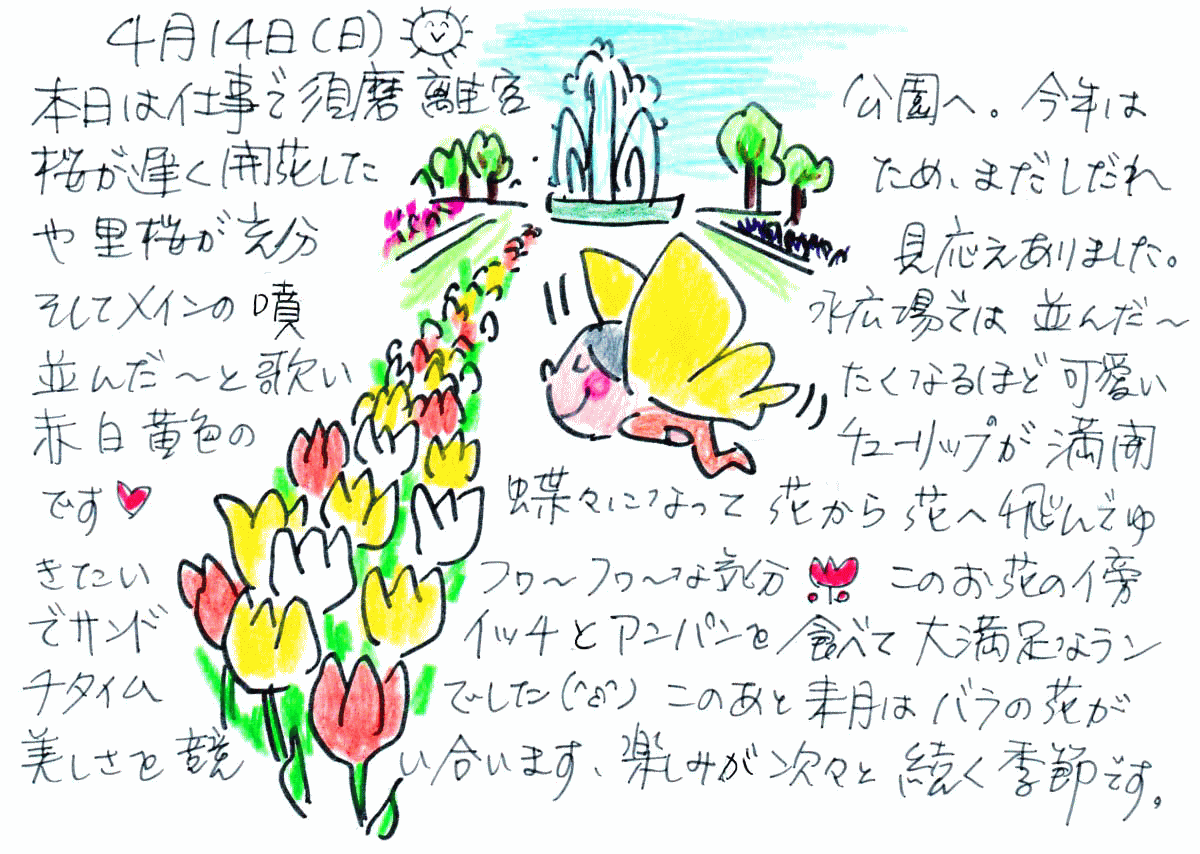 4月14日(日)
本日は仕事で須磨離宮公園へ。今年は
桜が遅く開花したため、まだしだれ
や里桜が充分見応えありました。
そしてメインの噴水広場では並んだ～
並んだ～と歌いたくなるほど可愛い
赤白黄色のチューリップが満開
です 蝶々になって花から花へ飛んでゆ
きたいフワ～フワ～な気分 このお花の傍
でサンドイッチとアンパンを食べて大満足なラン
チタイムでした(^o^) このあと来月はバラの花が
美しさを競い合います、楽しみが次々と続く季節です。